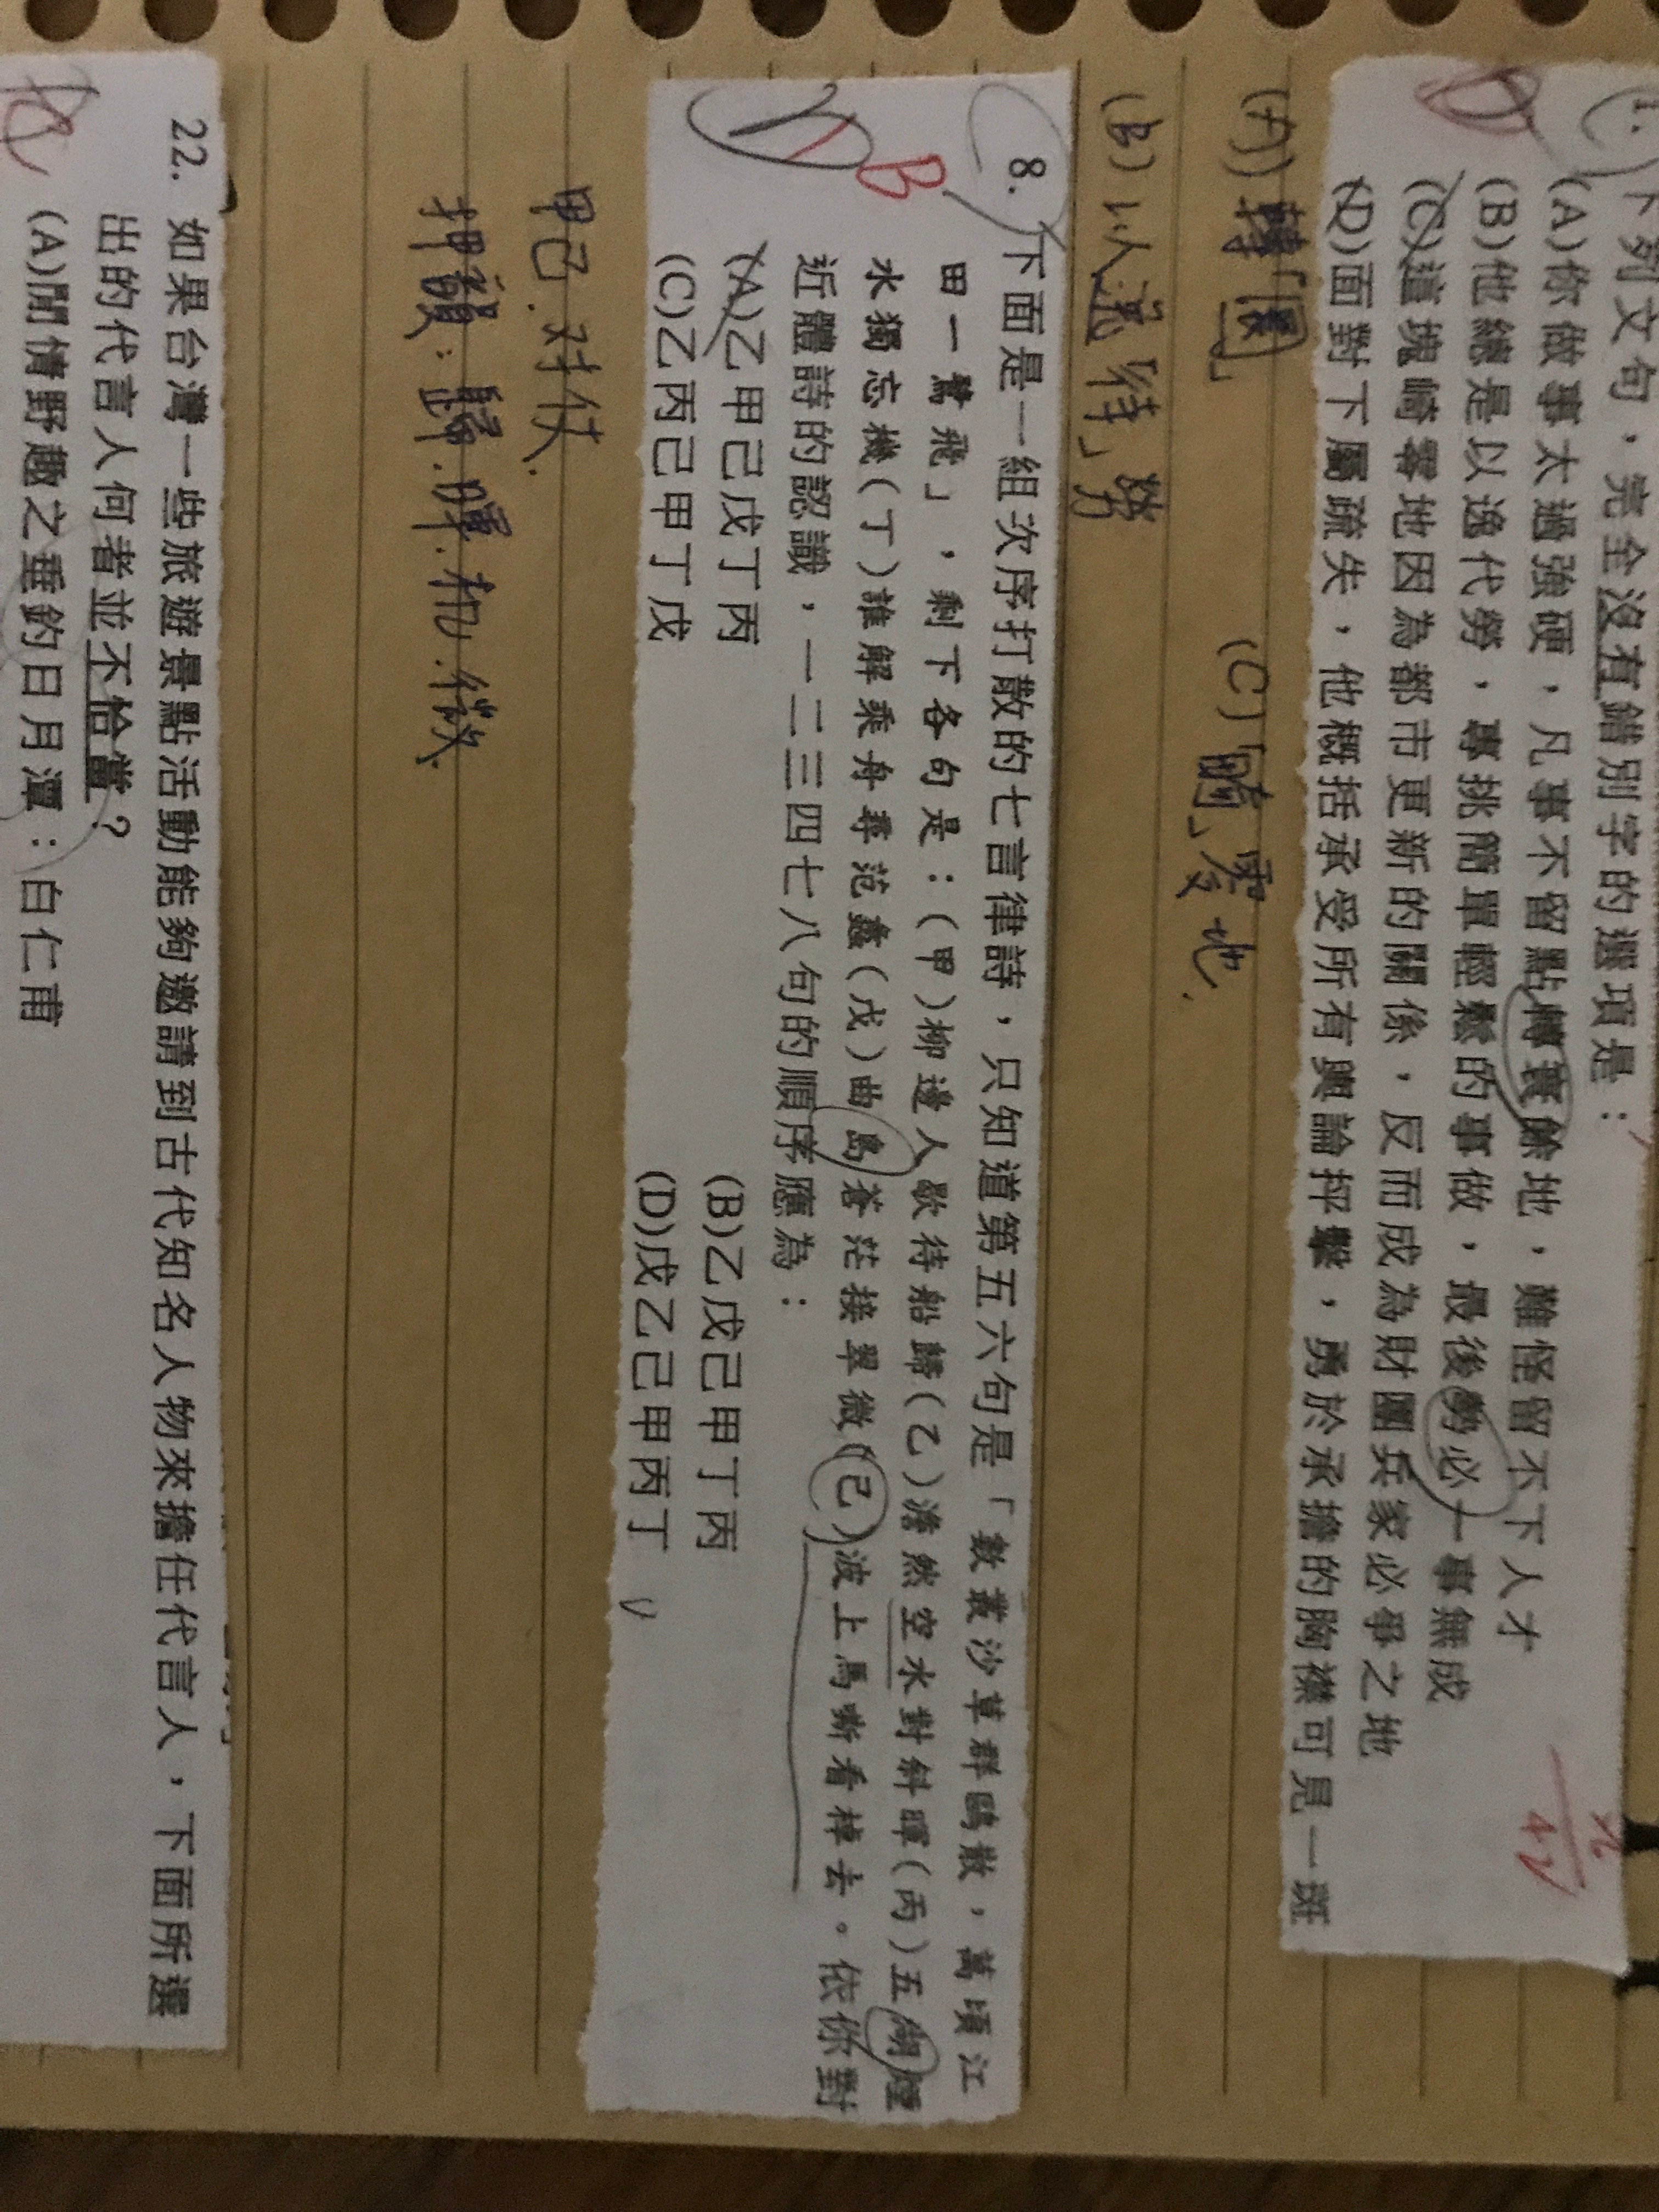 1. 下列文句，完全沒有錯別字的選項是：
(A)你做事太過強硬，凡事不留點轉寰餘地，難怪留不下人才
(B)他總是以逸代勞，專挑簡單輕鬆的事做，最後勢必一事無成
(C)這塊崎零地因為都市更新的關係，反而成為財團兵家必爭之地
(D)面對下屬疏失，他概括承受所有輿論抨擊，勇於承擔的胸襟可見一斑
(A) 轉「圜」
(C)「畸」零地.
(B) 以逸「待」勞
8. 下面是一組次序打散的七言律詩，只知道第五六句是「數叢沙草群鷗散，萬頃江
田一鷺飛」，剩下各句是：(甲)柳邊人歇待船歸(乙)澹然空水對斜暉(丙)五湖煙
水獨忘機(丁)誰解乘舟尋范蠡(戊)曲島蒼茫接翠微(己)波上馬嘶看棹去。依你對
近體詩的認識，一二三四七八句的順序應為：
B
(A)乙甲己戊丁丙
(B)乙戊己甲丁丙
(C)乙丙己甲丁戊
(D)戊乙己甲丙丁
甲己.对仗.
押韻：歸.暉.机.微.
22. 如果台灣一些旅遊景點活動能夠邀請到古代知名人物來擔任代言人，下面所選
出的代言人何者並不恰當？
(A)閒情野趣之垂釣日月潭：白仁甫